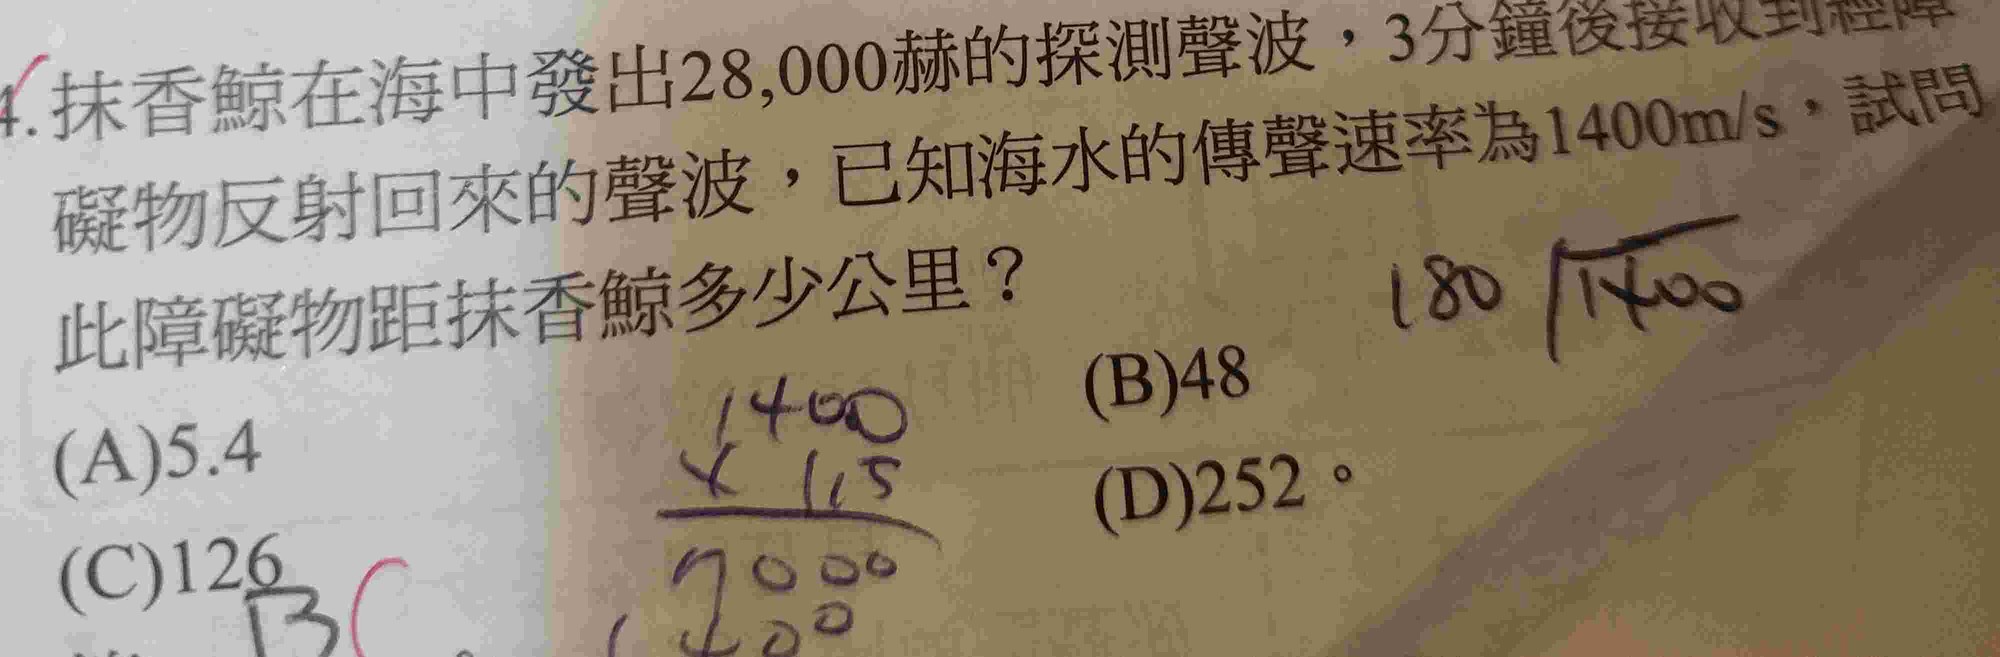 4.抹香鯨在海中發出28,000赫的探測聲波，3分鐘後接收到經障
礙物反射回來的聲波，已知海水的傳聲速率為1400m/s，試問
此障礙物距抹香鯨多少公里？
180 1400
(A)5.4
(B)48
(C)126
(D)252。
1400
× 1.5
7000
1400
B